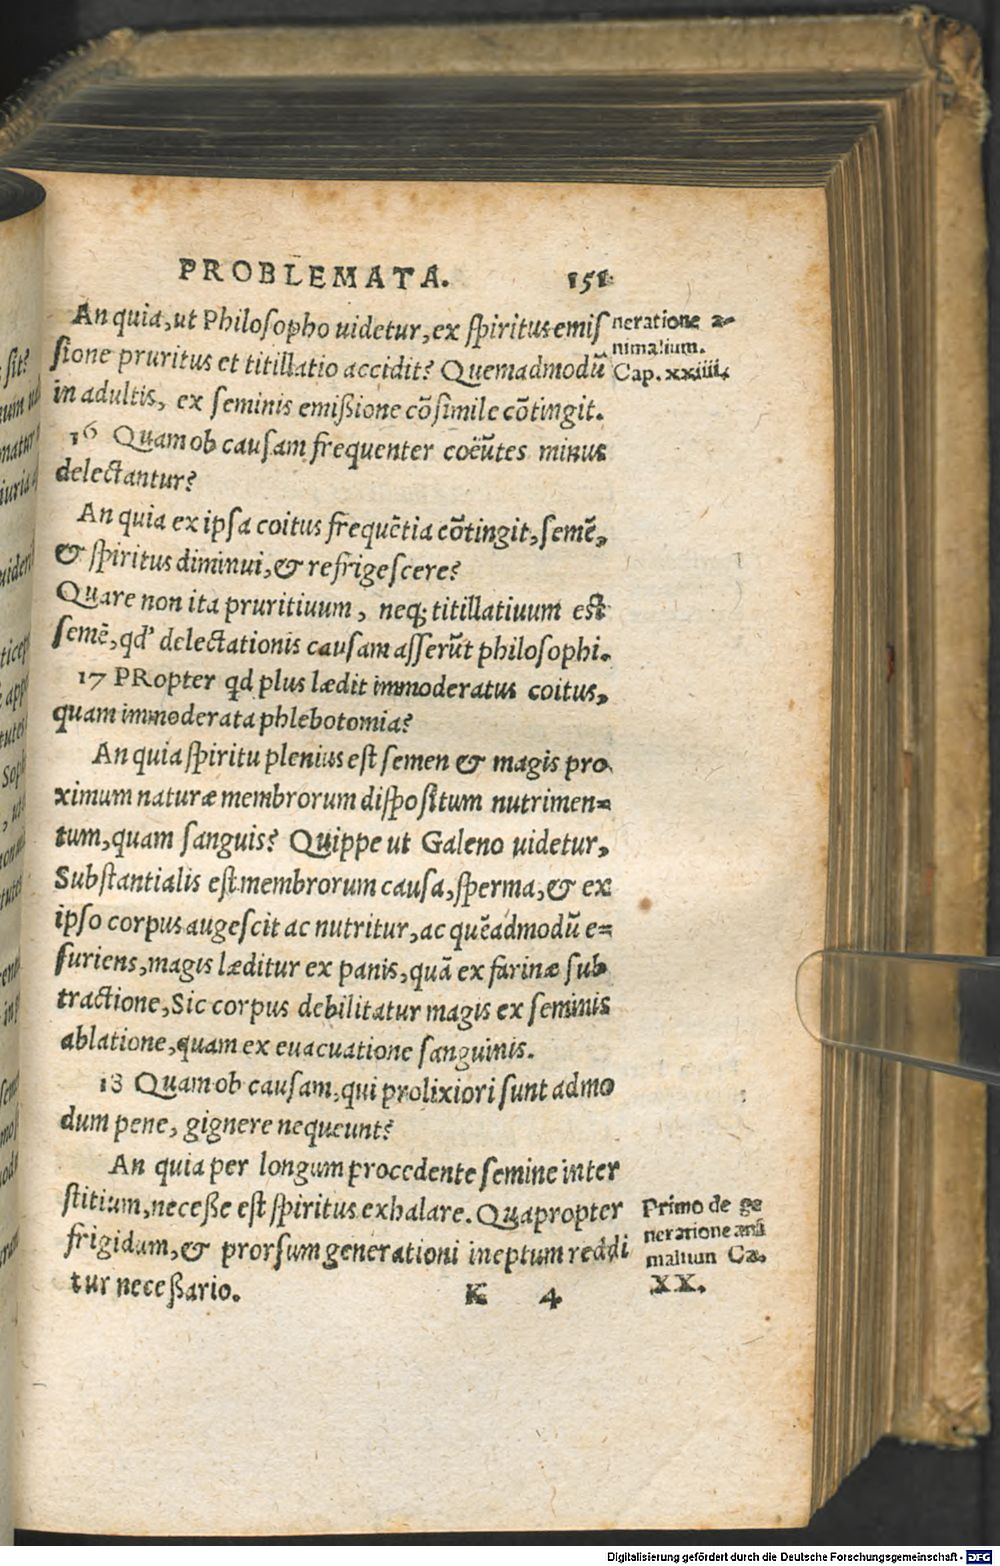 PROBLEMATA. 151
An quia, ut Philosopho uidetur, ex spiritus emis
sione pruritus et titillatio accidit? Quemadmodū
in adultis, ex seminis emißione cōsimile cōtingit.
neratione a-
nimalium.
Cap. xxiiii.
16 Quam ob causam frequenter coëūtes minus
delectantur?
An quia ex ipsa coitus frequētia cōtingit, semē,
& spiritus diminui, & refrigescere?
Quare non ita pruritiuum, neq; titillatiuum est
semē, qd' delectationis causam asserūt philosophi.
17 PRopter qd plus lædit immoderatus coitus,
quam immoderata phlebotomia?
An quia spiritu plenius est semen & magis pro
ximum naturæ membrorum dispositum nutrimen=
tum, quam sanguis? Quippe ut Galeno uidetur,
Substantialis est membrorum causa, sperma, & ex
ipso corpus augescit ac nutritur, ac quēadmodū e=
suriens, magis læditur ex panis, quā ex farinæ sub
tractione, Sic corpus debilitatur magis ex seminis
ablatione, quam ex euacuatione sanguinis.
18 Quam ob causam, qui prolixiori sunt admo
dum pene, gignere nequeunt?
An quia per longum procedente semine inter
stitium, neceße est spiritus exhalare. Quapropter
frigidum, & prorsum generationi ineptum reddi
tur neceßario.
Primo de ge
neratione ani
malium Ca.
XX.
K 4
Digitalisierung gefördert durch die Deutsche Forschungsgemeinschaft - DFG